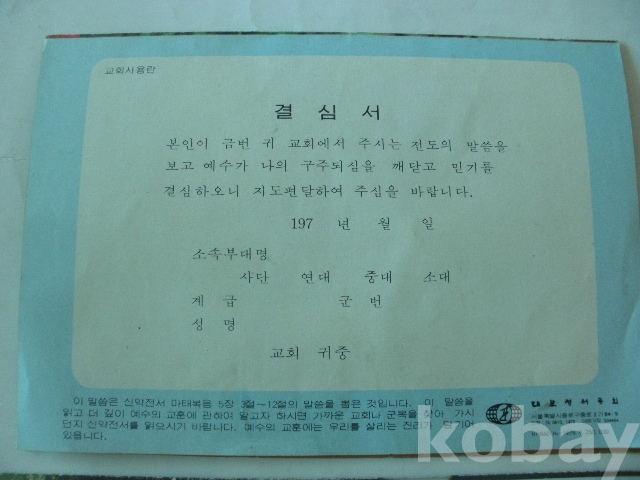 교회사용란
결 심 서
본인이 금번 귀 교회에서 주시는 전도의 말씀을
보고 예수가 나의 구주되심을 깨닫고 믿기를
결심하오니 지도편달하여 주심을 바랍니다.
197 년 월 일
소속부대명
사단 연대 중대 소대
계 급 군 번
성 명
교회 귀중
이 말씀은 신약전서 마태복음 5장 3절~12절의 말씀을 뽑은 것입니다. 이 말씀을
읽고 더 깊이 예수의 교훈에 관하여 알고자 하시면 가까운 교회나 군목을 찾아 가시
던지 신약전서를 읽으시기 바랍니다. 예수의 교훈에는 우리를 살리는 진리가 담기어
있읍니다.
kobay